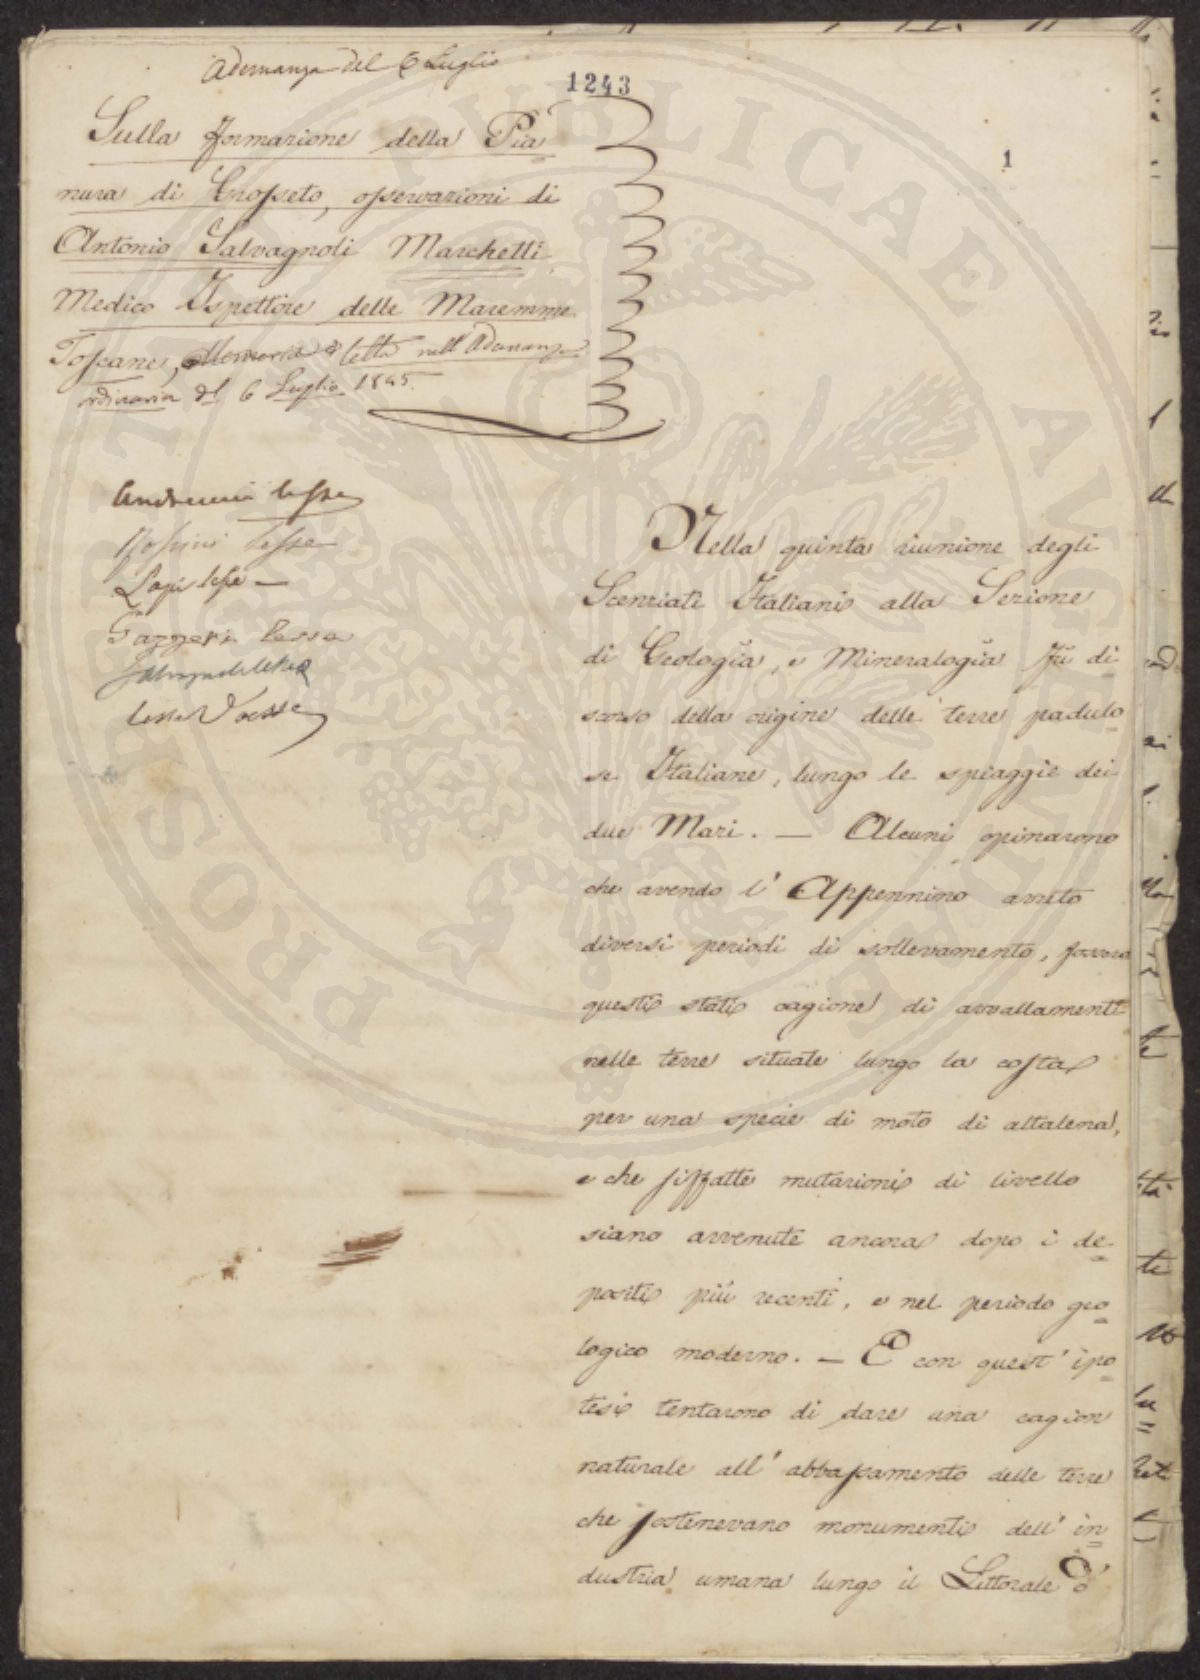 Adunanza del 6 Luglio
1243
1
Sulla formazione della Pia=
nura di Grosseto, osservazioni di
Antonio Salvagnoli Marchetti
Medico Ispettore delle Maremme
Toscane, Memoria letta nell'Adunanza
ordinaria del 6 Luglio 1845.
lesse
lesse
Lapi lesse —
Gazzeri lesse
lesse
Nella quinta riunione degli
Scenziati Italiani alla Sezione
di Geologia, e Mineralogia fù di=
scorso della origine delle terre padulo=
se Italiane, lungo le spiaggie dei
due Mari. — Alcuni opinarono
che avendo l'Appennino avuto
diversi periodi di sollevamento, fossero
questi stati cagione di avvallamenti
nelle terre situate lungo la costa
per una specie di moto di altalena,
e che siffatte mutazioni di livello
siano avvenute ancora dopo i de=
positi più recenti, e nel periodo geo=
logico moderno. — E con quest'ipo=
tesi tentarono di dare una cagion
naturale all'abbassamento delle terre
che sostenevano monumenti dell'in=
dustria umana lungo il Littorale
PROSPERITATI PVBLICAE AVGENDAE